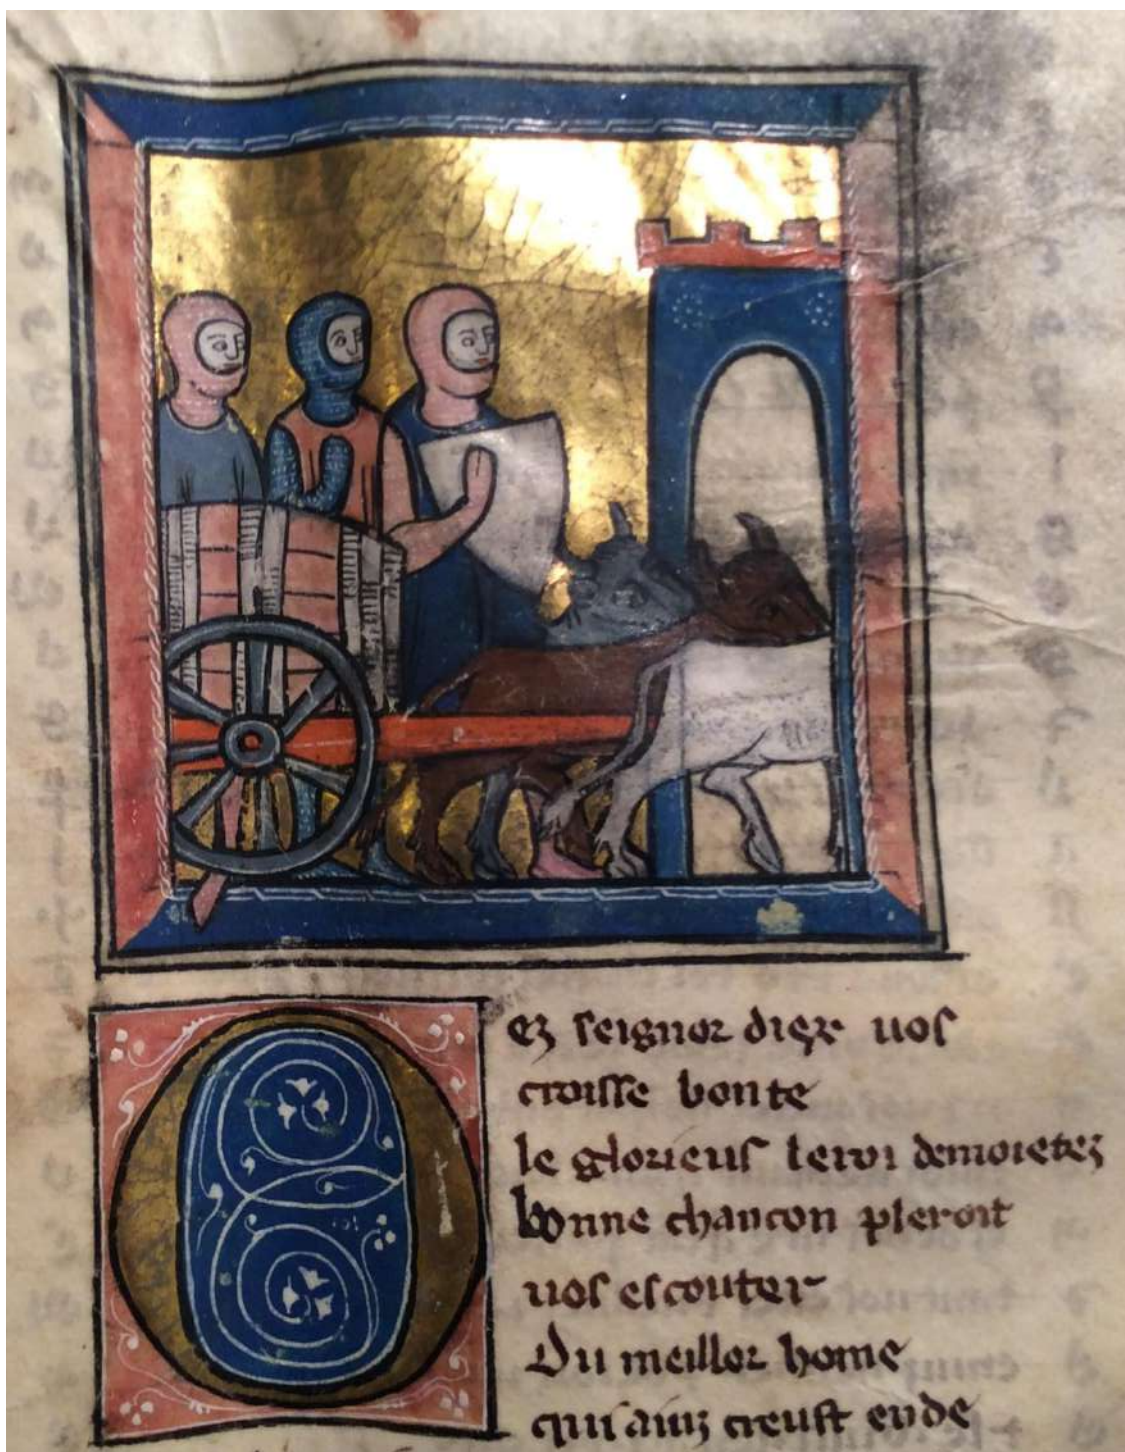 Oez seignor diex uos
croisse bonte
le glorieus leroi demaietez
bonne chancon pleroit
uos escouter
Du meillor home
qui ainz creust ende